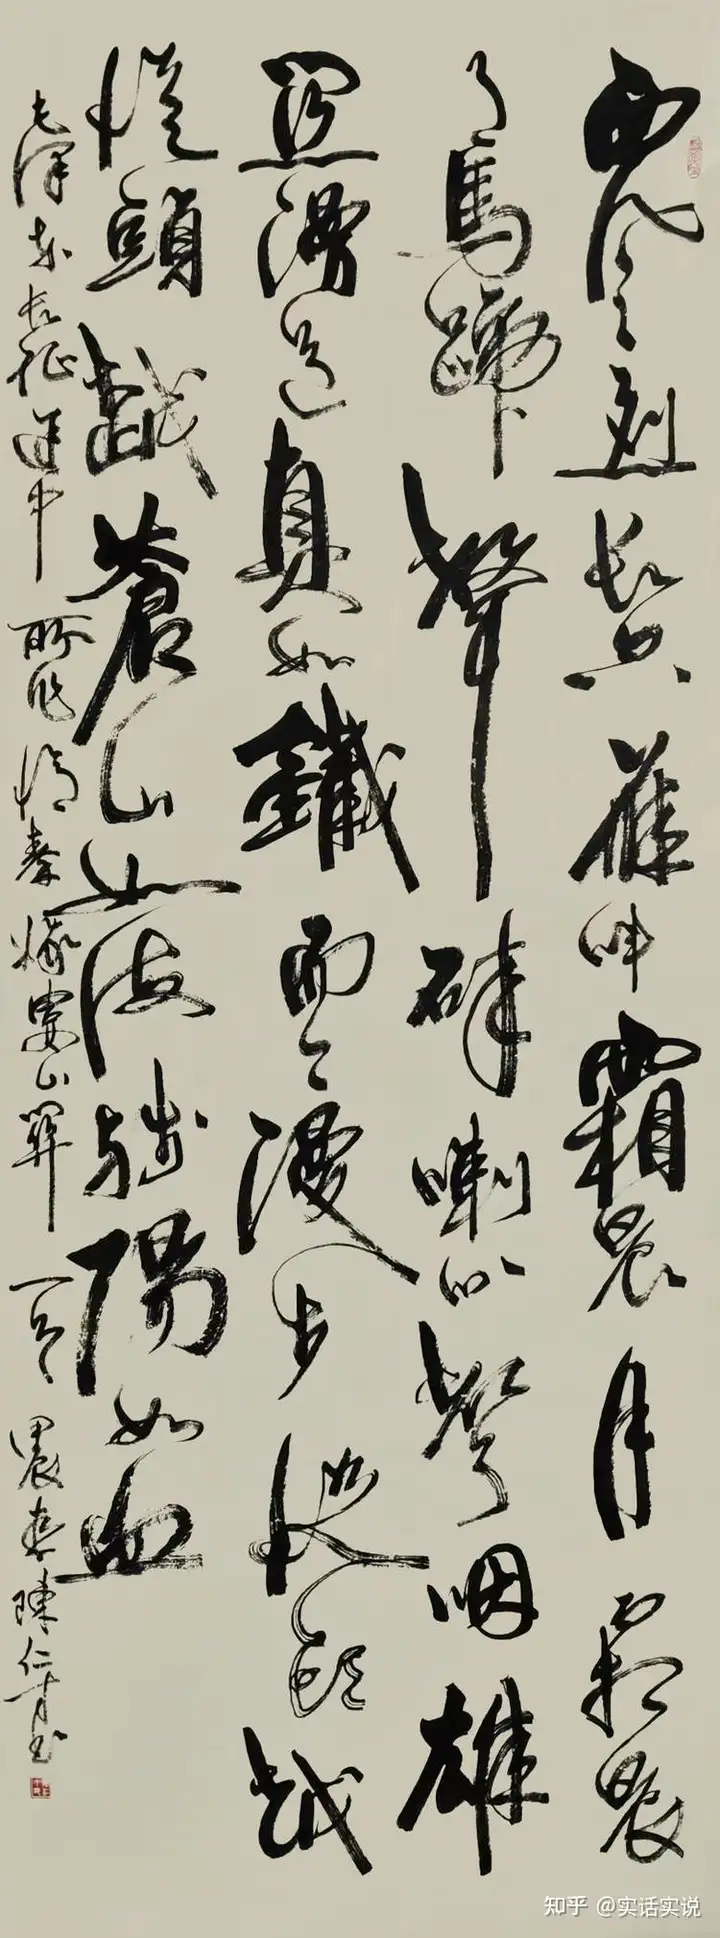 西風烈長空雁叫霜晨月霜晨
月馬蹄聲碎喇叭聲咽雄
關漫道真如鐵而今漫步從頭越
從頭越蒼山如海殘陽如血
毛澤东长征途中所作憶秦娥婁山關一 春陳仁书
知乎 @实话实说